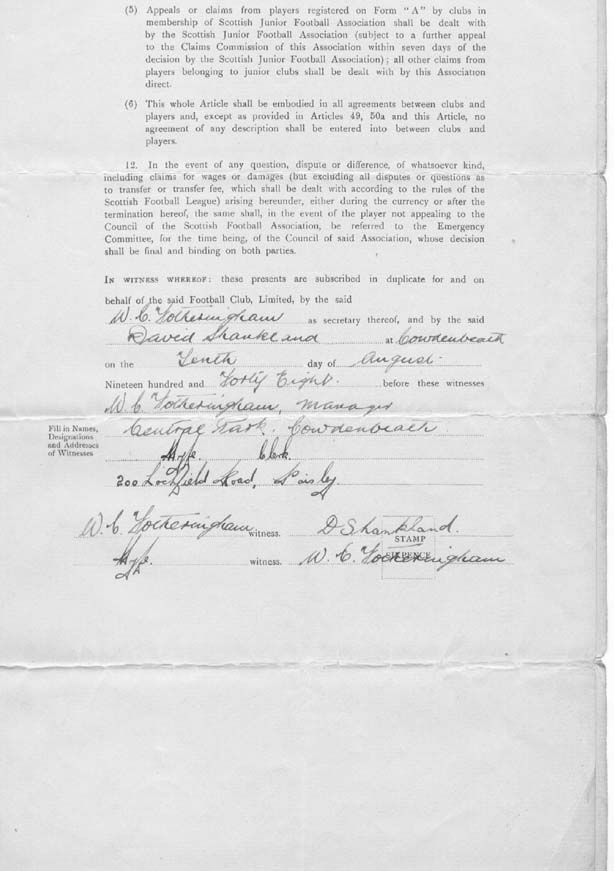 (5) Appeals or claims from players registered on Form "A" by clubs in
membership of Scottish Junior Football Association shall be dealt with
by the Scottish Junior Football Association (subject to a further appeal
to the Claims Commission of this Association within seven days of the
decision by the Scottish Junior Football Association); all other claims from
players belonging to junior clubs shall be dealt with by this Association
direct.
(6) This whole Article shall be embodied in all agreements between clubs and
players and, except as provided in Articles 49, 50a and this Article, no
agreement of any description shall be entered into between clubs and
players.
12. In the event of any question, dispute or difference, of whatsoever kind,
including claims for wages or damages (but excluding all disputes or questions as
to transfer or transfer fee, which shall be dealt with according to the rules of the
Scottish Football League) arising hereunder, either during the currency or after the
termination hereof, the same shall, in the event of the player not appealing to the
Council of the Scottish Football Association, be referred to the Emergency
Committee, for the time being, of the Council of said Association, whose decision
shall be final and binding on both parties.
IN WITNESS WHEREOF: these presents are subscribed in duplicate for and on
behalf of the said Football Club, Limited, by the said
W. C. Fotheringham as secretary thereof, and by the said
David Shankland at Cowdenbeath
on the Tenth day of August
Nineteen hundred and Forty Eight. before these witnesses
W. C. Fotheringham, Manager
Fill in Names,
Designations
and Addresses
of Witnesses
Central Park. Cowdenbeath
Clerk
200 Lochfield Road, Paisley.
W. C. Fotheringham witness. D Shankland.
STAMP
SIXPENCE
witness. W. C. Fotheringham